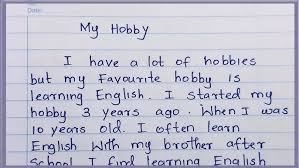 Date:
My Hobby
I have a lot of hobbies
but my Favourite hobby is
learning English. I started my
hobby 3 years ago. When I was
10 years old. I often learn
English with my brother after
School I find learning English